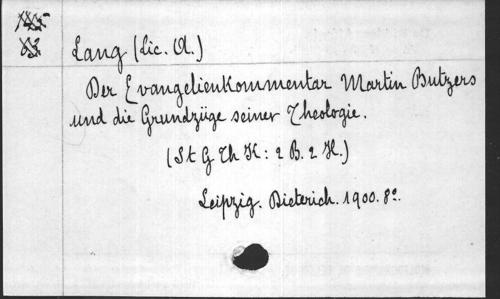 Lang (Lic. A.)
Der Evangelienkommentar Martin Butzers
und die Grundzüge seiner Theologie.
(St G Th K: 2 B. 2 H.)
Leipzig. Dieterich. 1900. 8º.